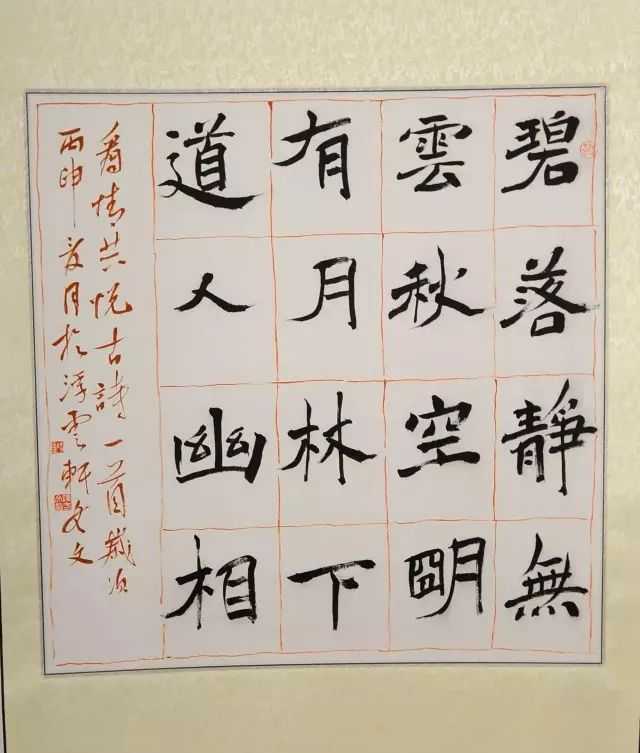 碧落靜無
雲秋空朙
有月林下
道人幽相
情共悦古詩一首歲次
丙申夏月於浮雲軒文